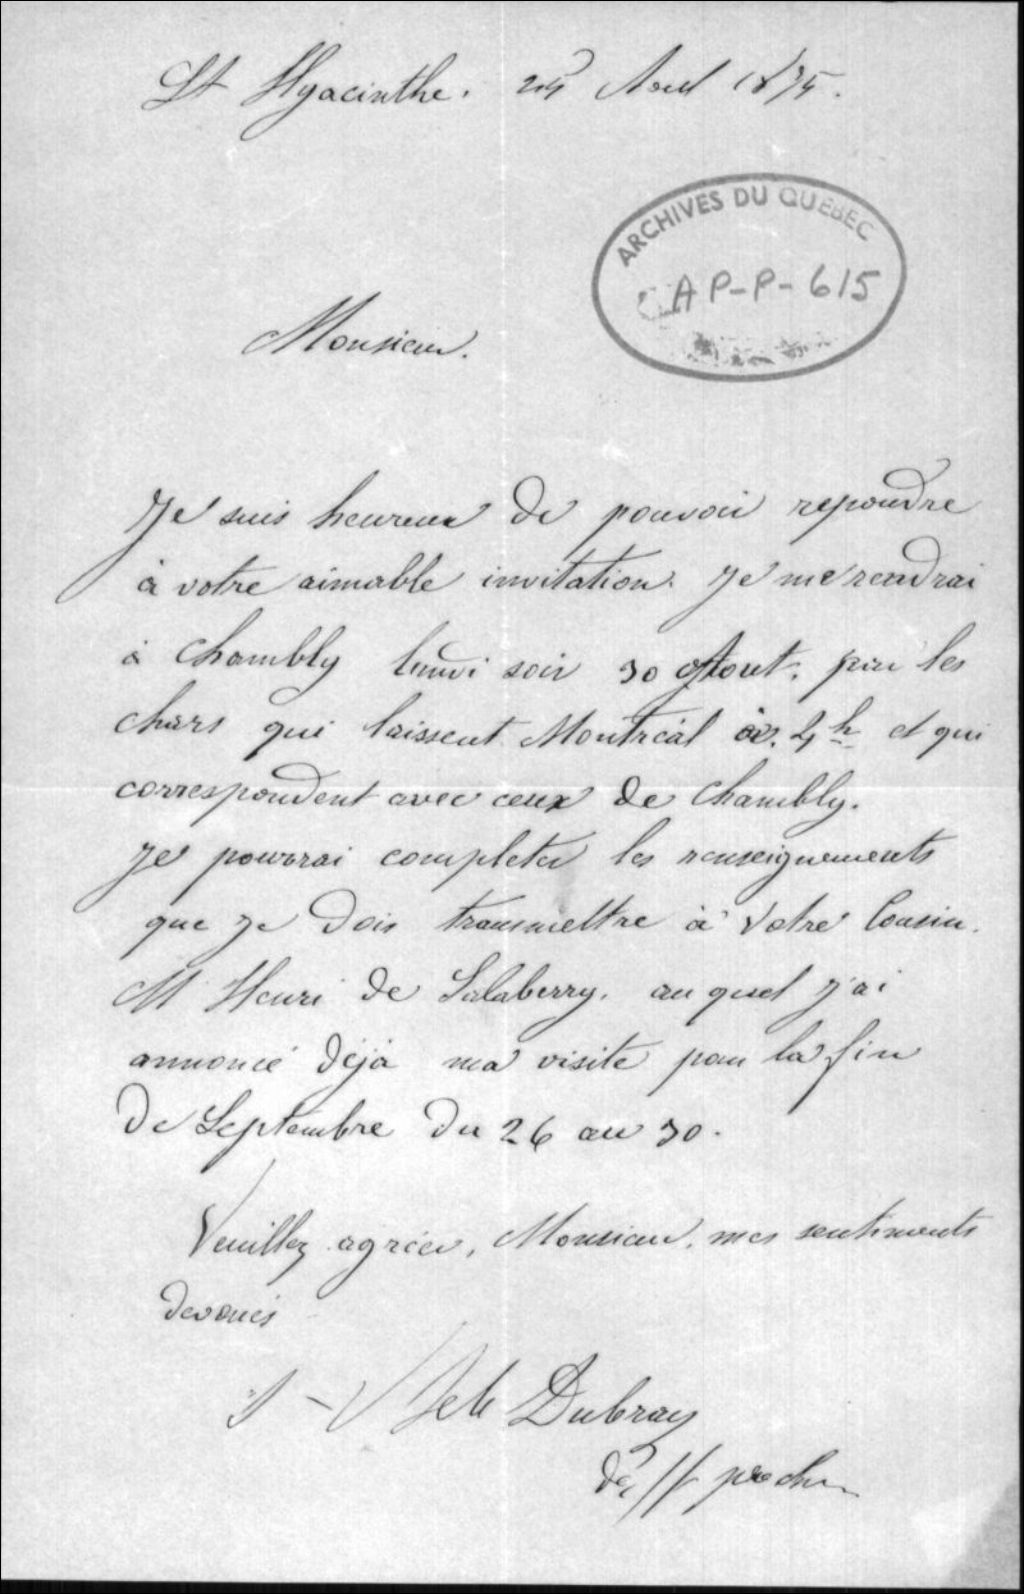 St Hyacinthe. 25 Aout 1875.
ARCHIVES DU QUEBEC
AP-P-615
Monsieur.
Je suis heureux de pouvoir repondre
à votre aimable invitation. Je me rendrai
à Chambly lundi soir 30 Aout. par les
chars qui laissent Montréal à 4h et qui
correspondent avec ceux de Chambly.
Je pourrai completer les renseignements
que je dois transmettre à votre Cousin.
M Henri de Salaberry. au quel j'ai
annoncé déjà ma visite pour la fin
de Septembre du 26 au 30.
Veuillez agréer, Monsieur, mes sentiments
devoués
Dubray